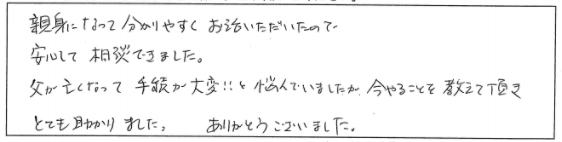 親身になって分かりやすく お話いただいたので
安心して 相談できました。
父が亡くなって 手続が大変!!と悩んでいましたが、今やることを教えて頂き
とても助かりました。 ありがとうございました。